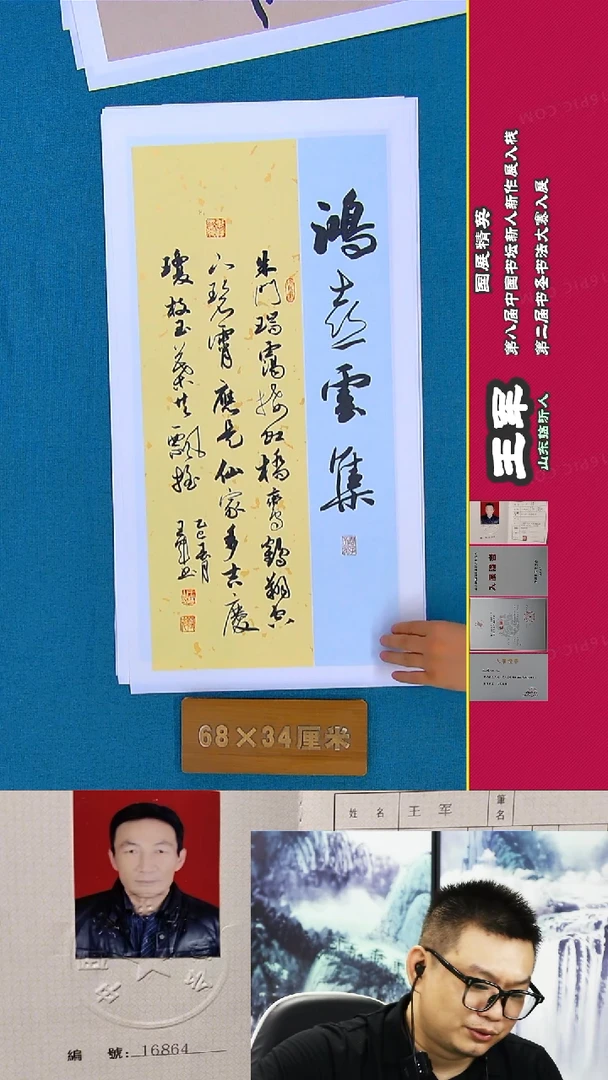 鴻喜雲集
朱門瑞靄接虹橋鸞鶴翔空
入碧霄應是仙家多吉慶
瓊枝玉葉共飄搖
王軍書
68×34厘米
国展精英
第八届中国书坛新人新作展入展
第二届书圣书法大赛入展
王军
山东临沂人
入展證書
姓 名 王 军 筆名
編 號: 16864